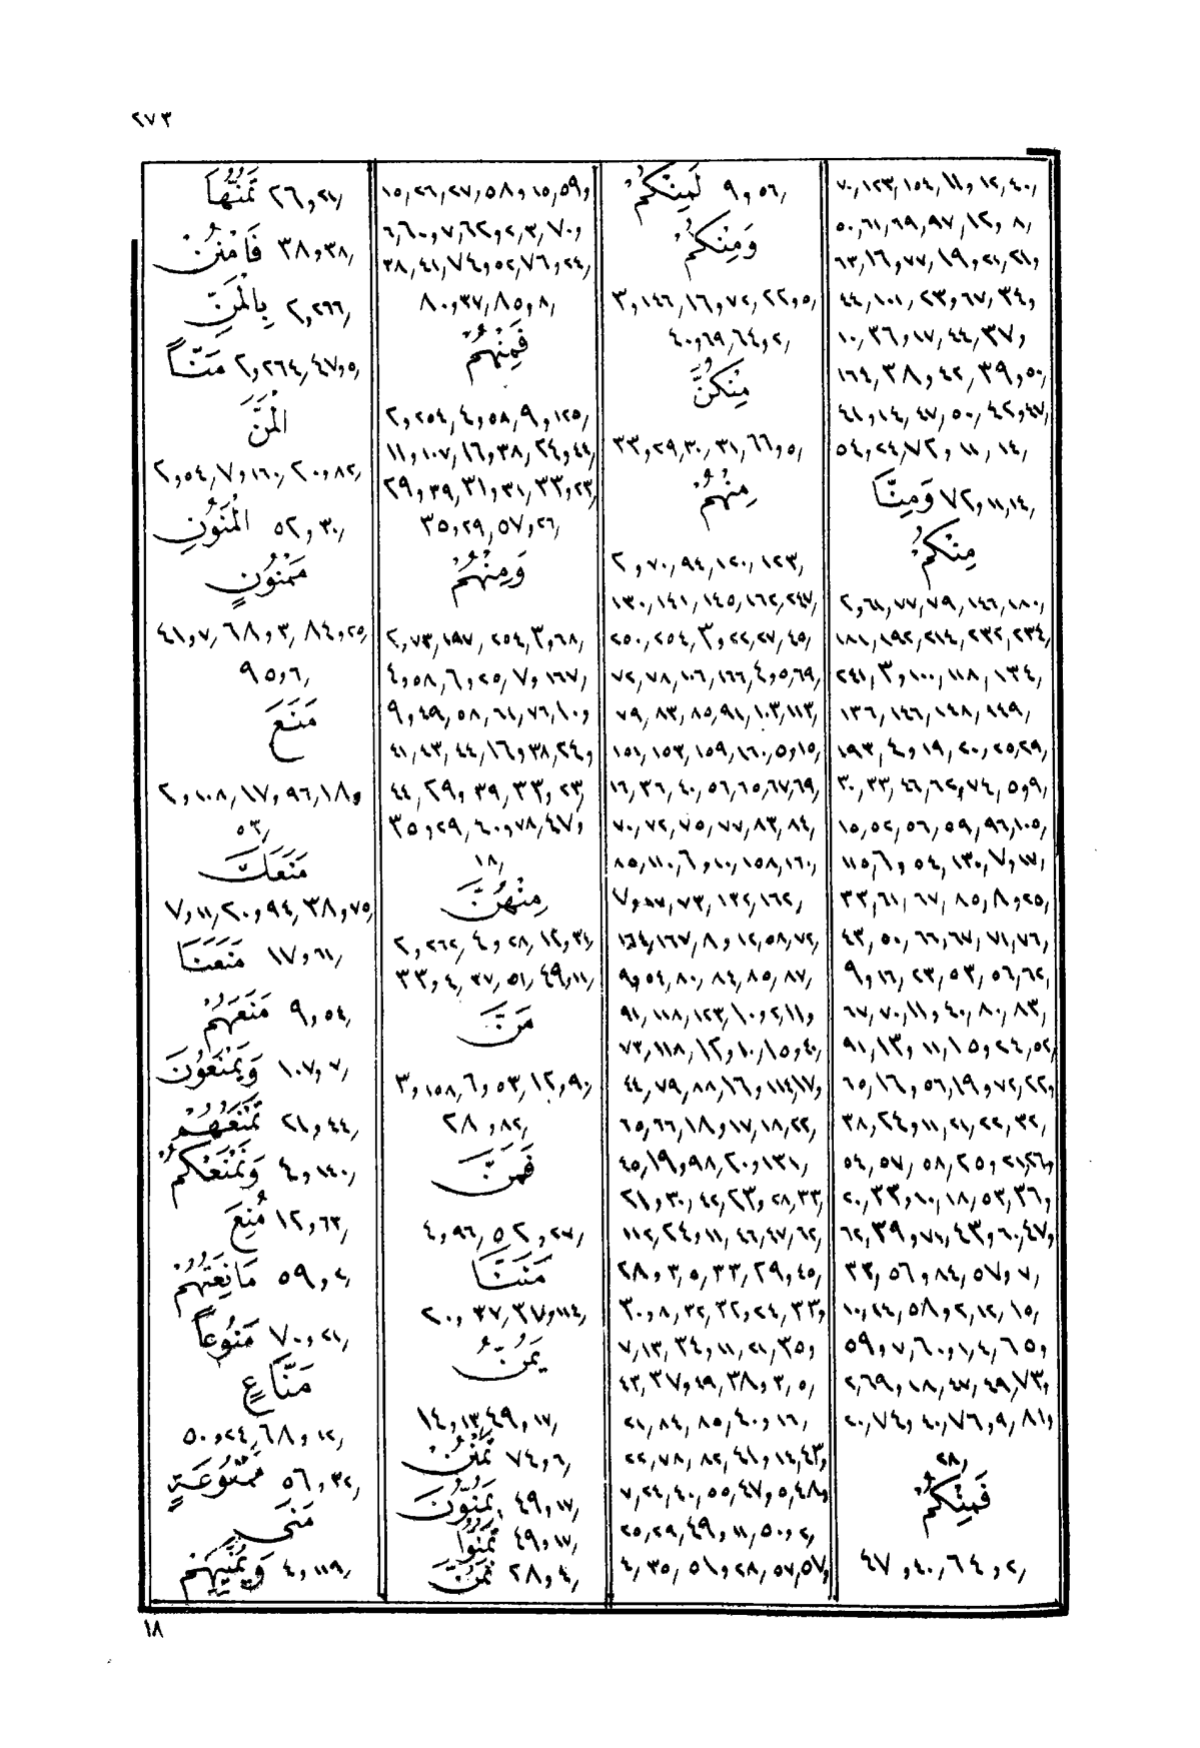 ٢٧٣
٧٠, ١٢٣, ١٥٤, ١١و ١٢, ٤٠,
٥٠, ٦١, ٦٩, ٩٧, ١٢و ٨,
٦٣, ١٦, ٧٧, ١٩و ٢١, ٢١و
٤٤, ١٠١, ٢٣و ٦٧, ٣٤و
١٠, ٣٦, ١٧و ٤٤, ٣٧و
١٦٤, ٣٨, ٤٢, ٣٩و ٥٠,
٤١, ١٤, ٤٧, ٥٠, ٤٦و ٤٧,
٥٤, ٢٤, ٧٢و ١١, ١٤,
وَمِنَّا ٧٢و ١١, ١٤,
مِنْكُمْ
٢و ٦١, ٧٧, ٧٩, ١٤٦, ١٨٠,
١٨١, ١٩٢, ٢١٤, ٢٣٢, ٢٣٤,
٢٤١, ٣و ١٠٠, ١١٨, ١٣٤,
١٣٦, ١٤٦, ١٤٨, ١٤٩,
١٩٣, ٤و ١٩, ٢٠, ٢٥, ٢٩,
٣٠, ٣٣, ٤٤, ٦٢, ٧٤, ٥و ٩,
١٥, ٥٢, ٥٦, ٥٩, ٩٦, ١٠٥,
١١٥, ٦و ٥٤, ١٣٠, ٧و ١٧,
٣٣, ٦١, ٦٧, ٨٥, ٨و ٢٥,
٤٣, ٥٠, ٦٦, ٦٧, ٧١, ٧٦,
٩و ١٦, ٢٣, ٥٣, ٥٦, ٦٢,
٦٧, ٧٠, ١١و ٤٠, ٨٠, ٨٣,
٩١, ١٣و ١١, ١٥و ٢٤, ٥٢,
٦٥, ١٦و ٥٦, ١٩و ٧٢, ٢٢و
٣٨, ٢٤و ١١, ٢١, ٢٢, ٣٢,
٥٤, ٥٧, ٥٨, ٢٥و ٢١, ٢٦و
٢٠, ٣٣و ١٠, ١٨, ٥٣, ٣٦و
٦٢, ٣٩و ٧١, ٤٣و ٦٠, ٤٧و
٣٣, ٥٦و ٨٤, ٥٧و ٧,
١٠, ٢٤, ٥٨و ٢, ١٢, ١٥,
٥٩و ٧, ٦٠و ١, ٤, ٦٥و
٢, ٦٩و ١٨, ٤٧, ٤٩, ٧٣و
٢٠, ٧٤و ٤٠, ٧٦و ٩, ٨١و
٢٨,
فَمِنْكُمْ
٤٧و ٤٠, ٦٤و ٢,
لَمِنْكُمْ ٩و ٥٦,
وَمِنْكُمْ
٣و ١٤٦, ١٦و ٧٢, ٢٢و ٥,
٤٠و ٦٩, ٦٤و ٢,
مِنْكُنَّ
٣٣و ٢٩, ٣٠, ٣١, ٦٦و ٥,
مِنْهُمْ
٢و ٧٠, ٩٤, ١٢٠, ١٢٣,
١٣٠, ١٤١, ١٤٥, ١٦٢, ٢٤٧,
٢٥٠, ٢٥٤, ٣و ٢٢, ٢٧, ٤٥,
٧٢, ٧٨, ١٠٦, ١٦٦, ٤و ٥, ٦٩,
٧٩, ٨٣, ٨٥, ٩١, ١٠٣, ١١٣,
١٥١, ١٥٣, ١٥٩, ١٦٠, ٥و ١٥,
١٦, ٣٦, ٤٠, ٥٦, ٦٥, ٦٧, ٦٩,
٧٠, ٧٢, ٧٥, ٧٧, ٨٣, ٨٤,
٨٥, ١١٠, ٦و ١٠, ١٥٨, ١٦٠,
٧و ٥٧, ٧٣, ١٣٢, ١٦٢,
١٦٤, ١٦٧, ٨و ١٢, ٥٨, ٧٢,
٩و ٥٤, ٨٠, ٨٤, ٨٥, ٨٧,
٩١, ١١٨, ١٢٣, ١٠و ٢, ١١و
٧٣, ١١٨, ١٢و ١٠, ١٥و ٤٠,
٤٤, ٧٩, ٨٨, ١٦و ١١٤, ١٧و
٦٥, ٦٦, ١٨و ١٧, ١٨, ٢٢,
٤٥, ١٩و ٩٨, ٢٠و ١٣١,
٢١و ٣٠, ٤٢, ٢٣و ٢٨, ٣٣,
١١٢, ٢٤و ١١, ٤٦, ٤٧, ٦٢,
٢٨و ٣, ٥, ٣٣, ٢٩, ٤٥,
٣٠و ٨, ٣٢, ٣٢, ٢٤, ٣٣و
٧, ١٣, ٣٤و ١١, ٢١, ٣٥و
٤٢, ٣٧و ٤٩, ٣٨و ٣, ٥,
٢١, ٨٤, ٨٥, ٤٠و ١٦,
٢٢, ٧٨, ٨٢, ٤١و ١٤, ٤٣و
٧, ٢٤, ٤٠, ٥٥, ٤٧و ٥, ٤٨و
٢٥, ٢٩, ٤٩و ١١, ٥٠و ٢,
٤, ٣٥, ٥١و ٢٨, ٥٧, ٥٧و
١٥, ٢٦, ٢٧, ٥٨و ١٥, ٥٩و
٦, ٦٠و ٧, ٦٢و ٢, ٣, ٧٠و
٣٨, ٤١, ٧٤و ٥٢, ٧٦و ٢٤,
٨٠و ٣٧, ٨٥و ٨,
فَمِنْهُمْ
٢و ٢٥٤, ٤و ٥٨, ٩و ١٢٥,
١١و ١٠٧, ١٦و ٣٨, ٢٤و ٤٤,
٢٩و ٣٩, ٣١و ٣١, ٣٣و ٢٣,
٣٥و ٢٩, ٥٧و ٢٦,
وَمِنْهُمْ
٢و ٧٣, ١٩٧, ٢٥٤, ٣و ٦٨,
٤و ٥٨, ٦و ٢٥, ٧و ١٦٧,
٩و ٤٩, ٥٨, ٦١, ٧٦, ١٠و
٤١, ٤٣, ٤٤, ١٦و ٣٨, ٢٤و
٤٤, ٢٩و ٣٩, ٣٣و ٢٣,
٣٥و ٢٩, ٤٠و ٧٨, ٤٧و
١٨,
مِنْهُنَّ
٢و ٢٦٢, ٤و ٢٨, ١٢و ٣١,
٣٣و ٤, ٣٧, ٥١, ٤٩و ١١,
مَنَّ
٣و ١٥٨, ٦و ٥٣, ١٢و ٩٠,
٢٨و ٨٢,
فَمَنَّ
٤و ٩٦, ٥٢و ٢٧,
مَنَنَّا
٢٠و ٣٧, ٣٧و ١١٤,
يَمُنُّ
١٤و ١٣, ٤٩و ١٧,
تَمْنُنْ ٧٤و ٦,
يَمُنُّونَ ٤٩و ١٧,
تَمُنُّوا ٤٩و ١٧,
نَمُنَّ ٢٨و ٤,
تَمُنُّهَا ٢٦و ٢١,
فَامْنُنْ ٣٨و ٣٨,
بِالْمَنِّ ٢و ٢٦٦,
مَنّاً ٢و ٢٦٤, ٤٧و ٥,
الْمَنَّ
٢و ٥٤, ٧و ١٦٠, ٢٠و ٨٢,
الْمَنُونِ ٥٢و ٣٠,
مَمْنُونٍ
٤١و ٧, ٦٨و ٣, ٨٤و ٢٥,
٩٥و ٦,
مَنَعَ
٢و ١٠٨, ١٧و ٩٦, ١٨و
٥٣,
مَنَعَكَ
٧و ١١, ٢٠و ٩٤, ٣٨و ٧٥,
مَنَعَنَا ١٧و ٦١,
مَنَعَهُمْ ٩و ٥٤,
وَيَمْنَعُونَ ١٠٧و ٧,
تَمْنَعُهُمْ ٢١و ٤٤,
وَنَمْنَعْكُمْ ٤و ١٤٠,
مُنِعَ ١٢و ٦٣,
مَانِعَتُهُمْ ٥٩و ٢,
مَنُوعاً ٧٠و ٢١,
مَنَّاعٍ
٥٠و ٢٤, ٦٨و ١٢,
مَمْنُوعَةٍ ٥٦و ٣٢,
مَنَى
وَيُمَنِّيهِمْ ٤و ١١٩,
١٨